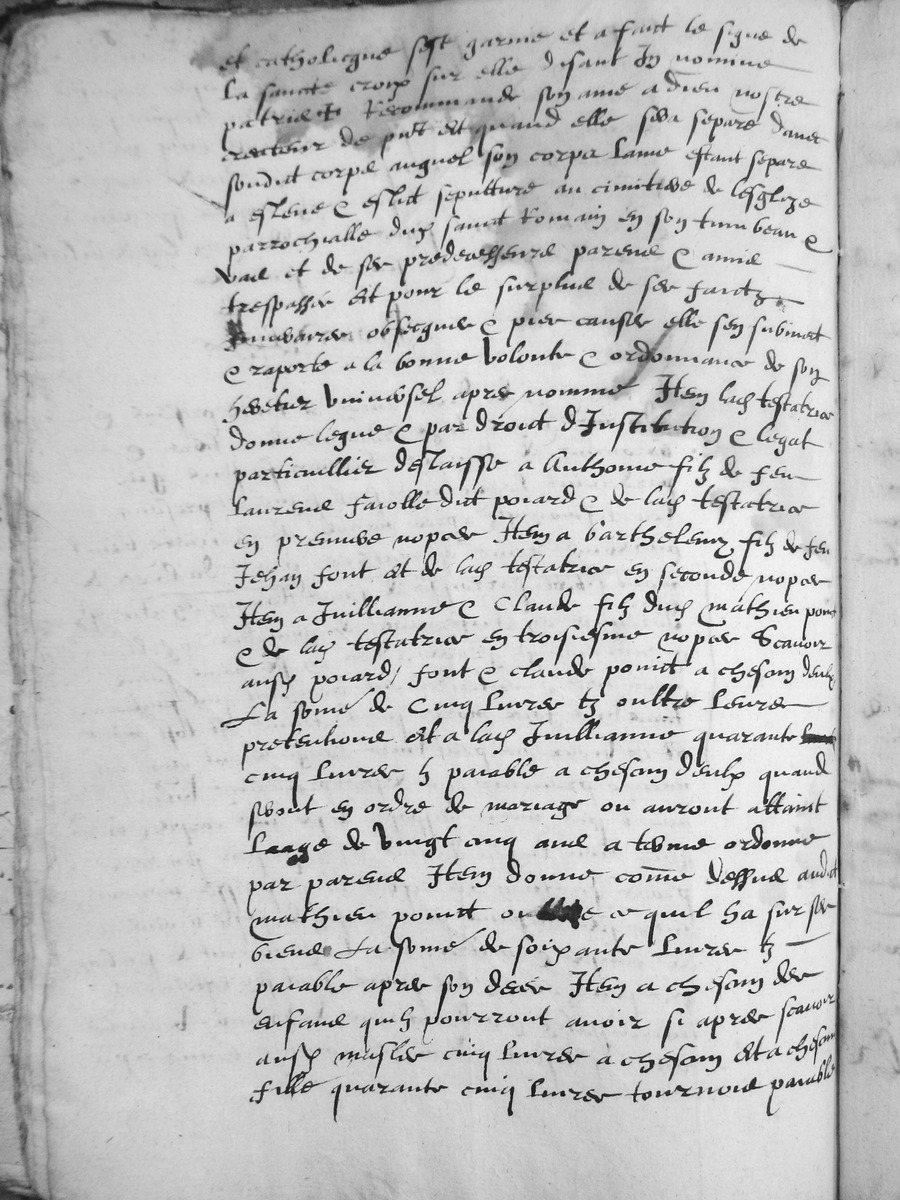 et catholicque sest garnie et a faict le signe de
la saincte croix sur elle disant In nomine
patris et Recommande son ame a dieu nostre
createur de pnt et quand elle sera separe davec
sondict corps auquel son corps lame estant separe
a esleue & eslict sepulture au cimitiere de lesglize
parrochialle dud sainct Romain en son tumbeau &
vas et de ses predecesseurs parens & amis
trespasses et pour le surplus de ses faictz
funeraires obsecques & pies causes elle sen submect
& raporte a la bonne volonte & ordonnance de son
heretier universel apres nomme Item lad testatrice
donne legue & par droict dInstitution & legat
particullier deslaisse a Anthoine filz de feu
Laurens faiolle dict poiard & de lad testatrice
en premiere nopces Item a barthelemy filz de feu
Jehan font et de lad testatrice en seconde nopces
Item a Juillianne & Claude filz dud mathieu poinct
& de lad testatrice en troisiesme nopces Scavoir
ausd poiard / font & claude poinct a chescun deulx
La some de cinq livres tz oultre leurs
pretentions et a lad Juillianne quarante
cinq livres tz paiable a chescun deulx quand
seront en ordre de mariage ou auront attaint
laage de vingt cinq ans a terme ordonne
par parens Item donne come dessus audict
mathieu poinct ce quil ha sur ses
biens La some de soixante livres tz
paiable apres son deces Item a chescun des
enfans quilz pourront avoir si apres scavoir
ausd masles cinq livres a chescun et a chescune
fille quarante cinq livres tournois paiable